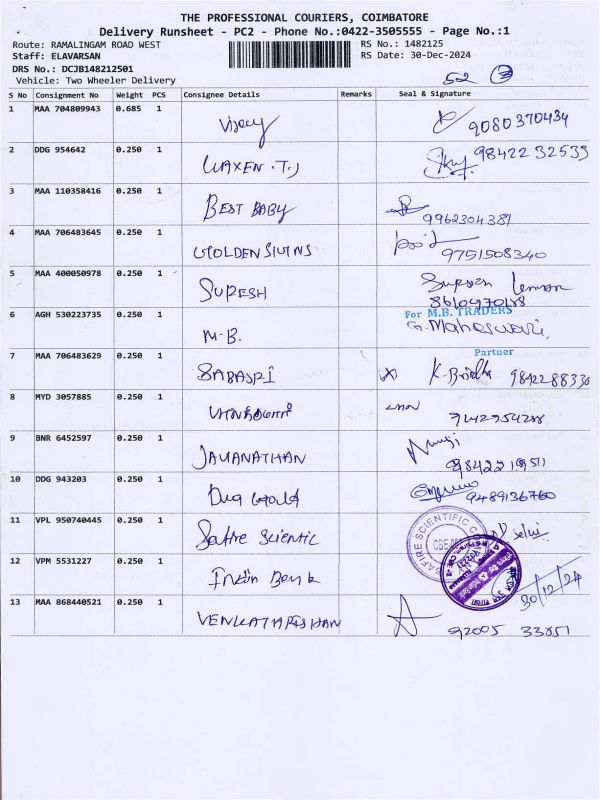 THE PROFESSIONAL COURIERS, COIMBATORE
Delivery Runsheet - PC2 - Phone No.:0422-3505555 - Page No.:1
Route: RAMALINGAM ROAD WEST RS No.: 1482125
Staff: ELAVARSAN RS Date: 30-Dec-2024
DRS No.: DCJB148212501
Vehicle: Two Wheeler Delivery 52
S No Consignment No Weight PCS Consignee Details Remarks Seal & Signature
1 MAA 704809943 0.685 1 Vijay 9080370434
2 DDG 954642 0.250 1 WAXEN .T.J 98422 32533
3 MAA 110358416 0.250 1 BEST BABY 9962304381
4 MAA 706483645 0.250 1 9751508340
5 MAA 400050978 0.250 1 SURESH
For M.B. TRADERS
6 AGH 530223735 0.250 1 M.B. G. Maheswari
Partner
7 MAA 706483629 0.250 1 SABASRI 9842288330
8 MYD 3057885 0.250 1
9 BNR 6452597 0.250 1 JAYANATHAN
10 DDG 943203 0.250 1 9489136760
11 VPL 950740445 0.250 1 Safire Scientic Selvi
SAFIRE SCIENTIFIC
12 VPM 5531227 0.250 1 Indin Bank 30/12/24
13 MAA 868440521 0.250 1 92005 33851